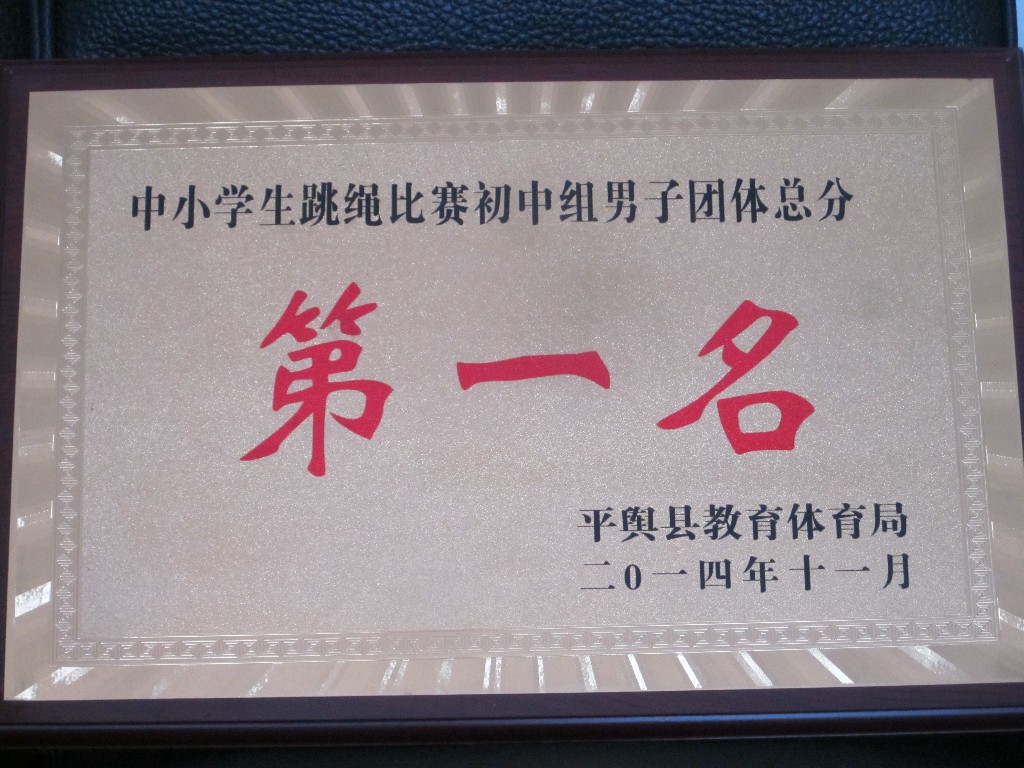 中小学生跳绳比赛初中组男子团体总分
第一名
平舆县教育体育局
二0一四年十一月